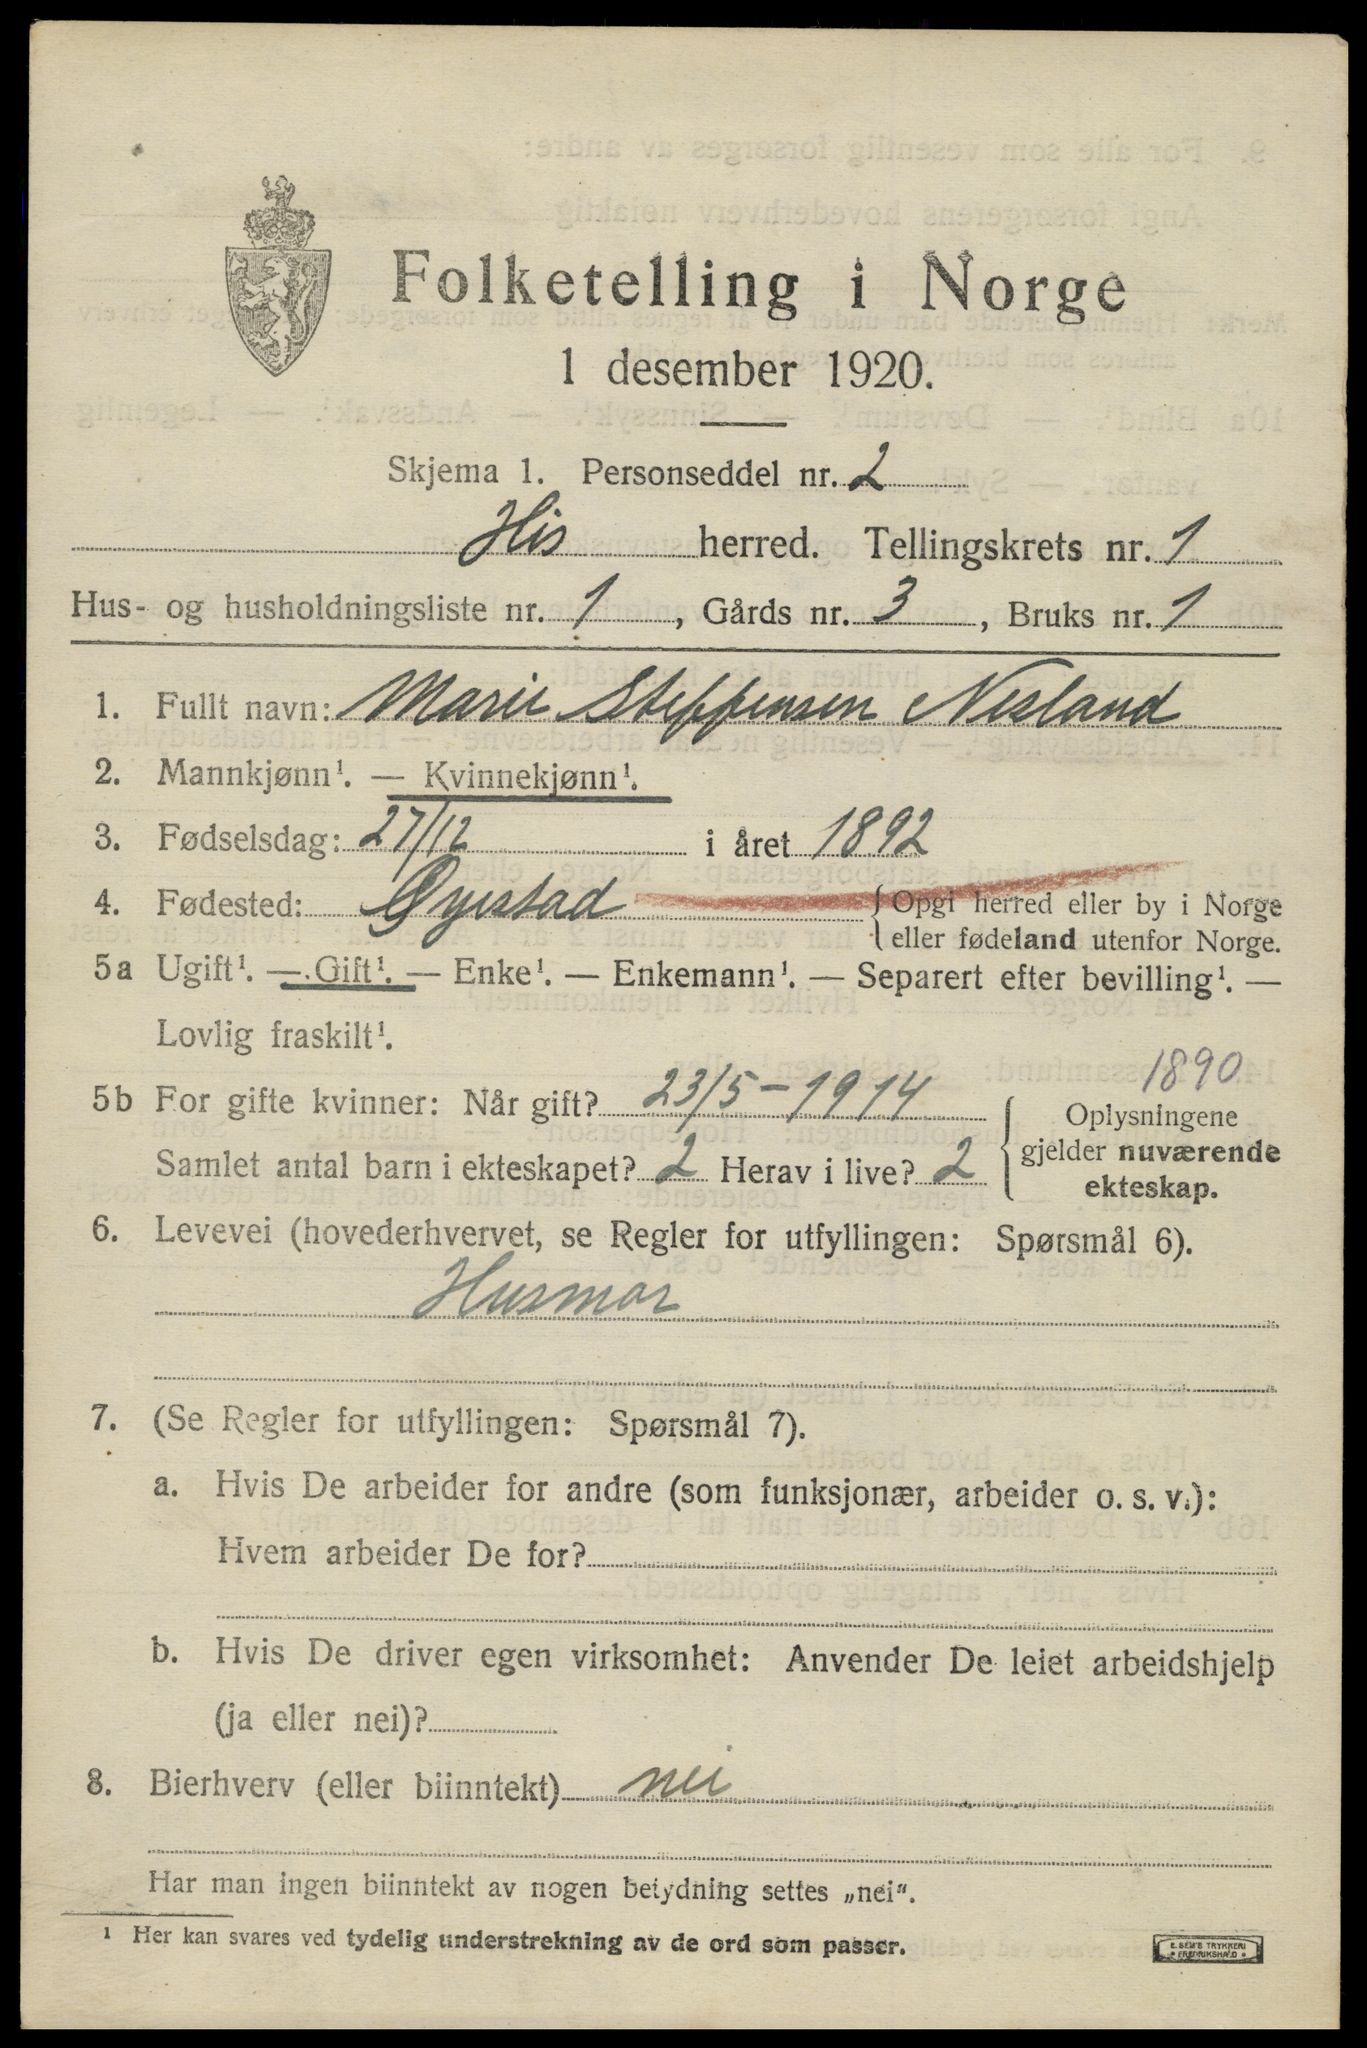 Folketelling i Norge
1 desember 1920.
Skjema 1. Personseddel nr. 2
His herred. Tellingskrets nr. 1
Hus- og husholdningsliste nr. 1, Gårds nr. 3, Bruks nr. 1
1. Fullt navn: Marie Steffensen Nesland
2. Mannkjønn¹. — Kvinnekjønn¹.
3. Fødselsdag: 27/12 i året 1892
4. Fødested: Øyestad { Opgi herred eller by i Norge
eller fødeland utenfor Norge.
5a Ugift¹. — Gift¹. — Enke¹. — Enkemann¹. — Separert efter bevilling¹. —
Lovlig fraskilt¹.
1890
5b For gifte kvinner: Når gift? 23/5-1914 { Oplysningene
gjelder nuværende
ekteskap.
Samlet antal barn i ekteskapet? 2 Herav i live? 2
6. Levevei (hovederhvervet, se Regler for utfyllingen: Spørsmål 6).
Husmor
7. (Se Regler for utfyllingen: Spørsmål 7).
a. Hvis De arbeider for andre (som funksjonær, arbeider o. s. v.):
Hvem arbeider De for?
b. Hvis De driver egen virksomhet: Anvender De leiet arbeidshjelp
(ja eller nei)?
8. Bierhverv (eller biinntekt) nei
Har man ingen biinntekt av nogen betydning settes „nei“.
¹ Her kan svares ved tydelig understrekning av de ord som passer.
E. SEM'S TRYKKERI
FREDRIKSHALD